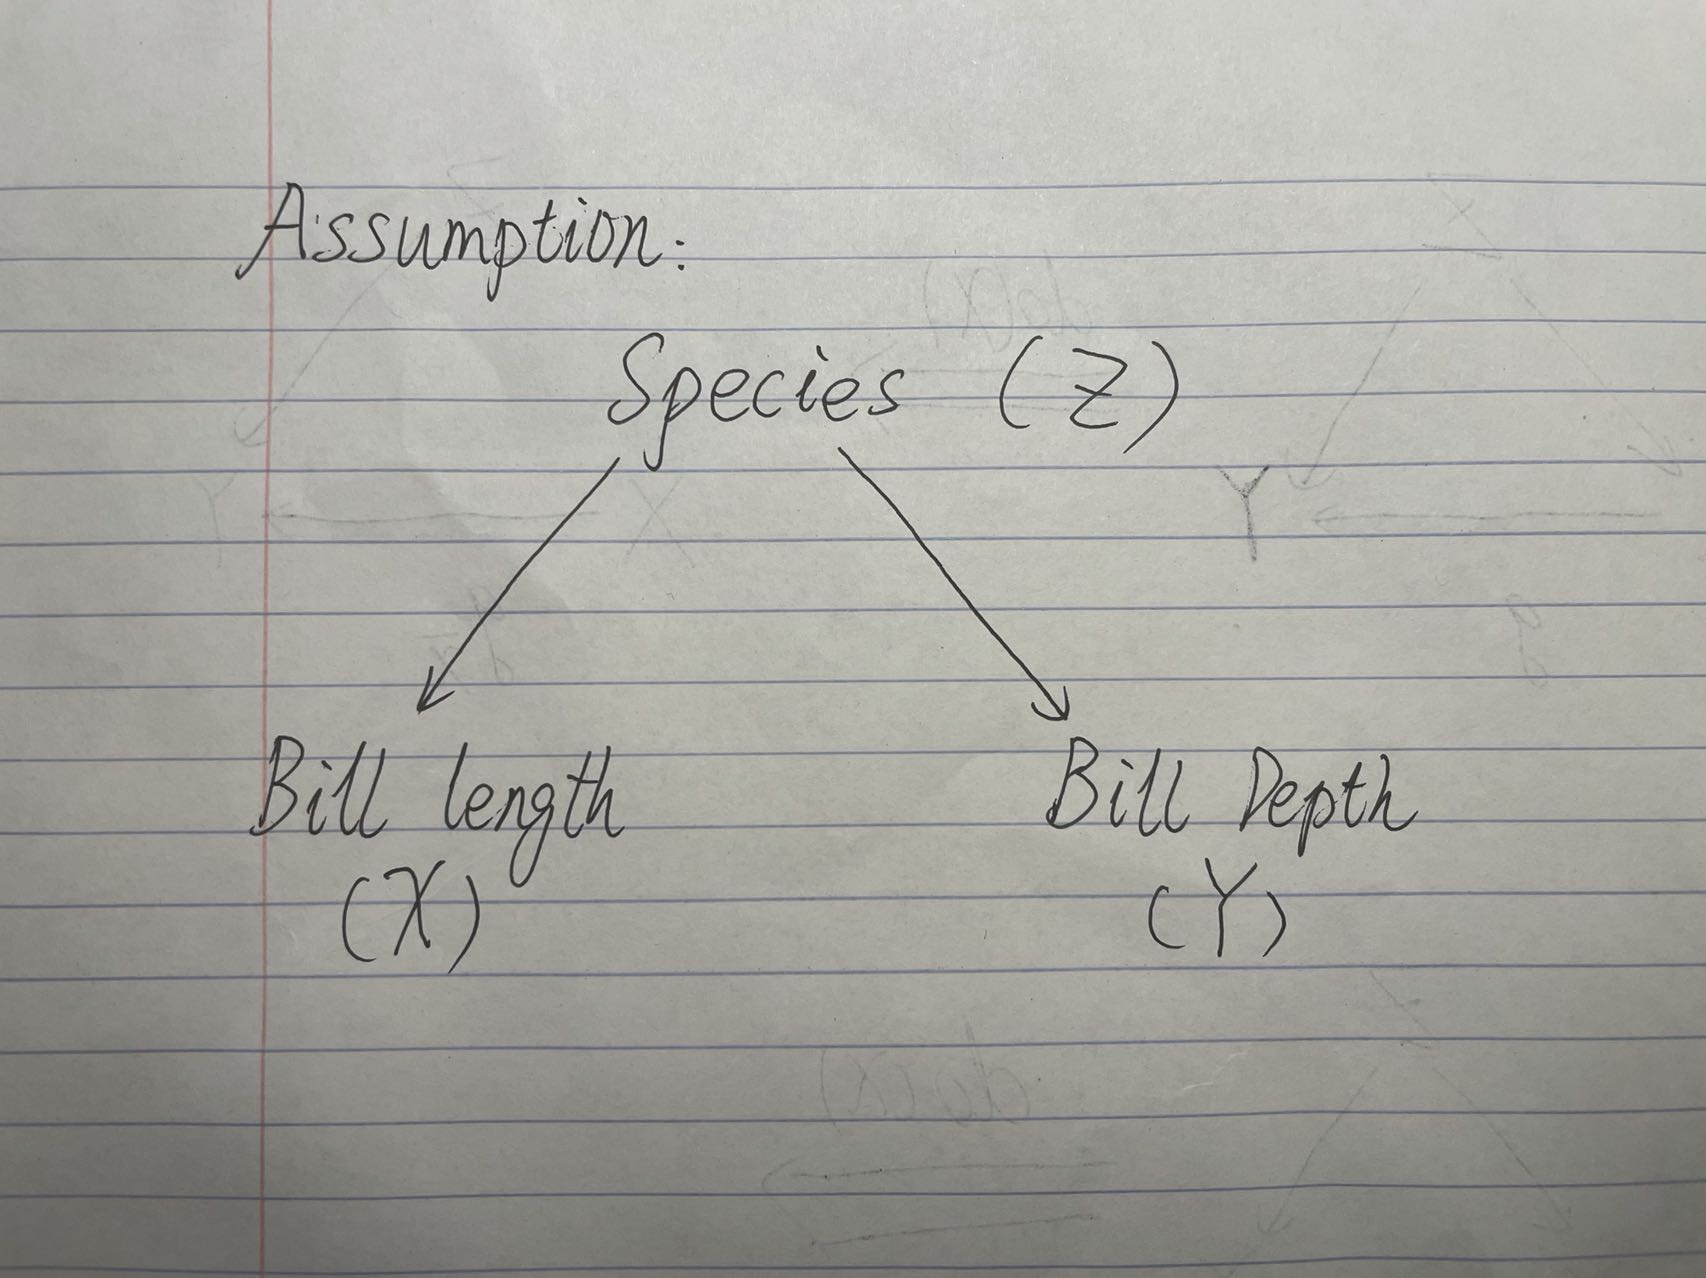 Assumption:
Species (Z)
Bill length
(X)
Bill Depth
(Y)